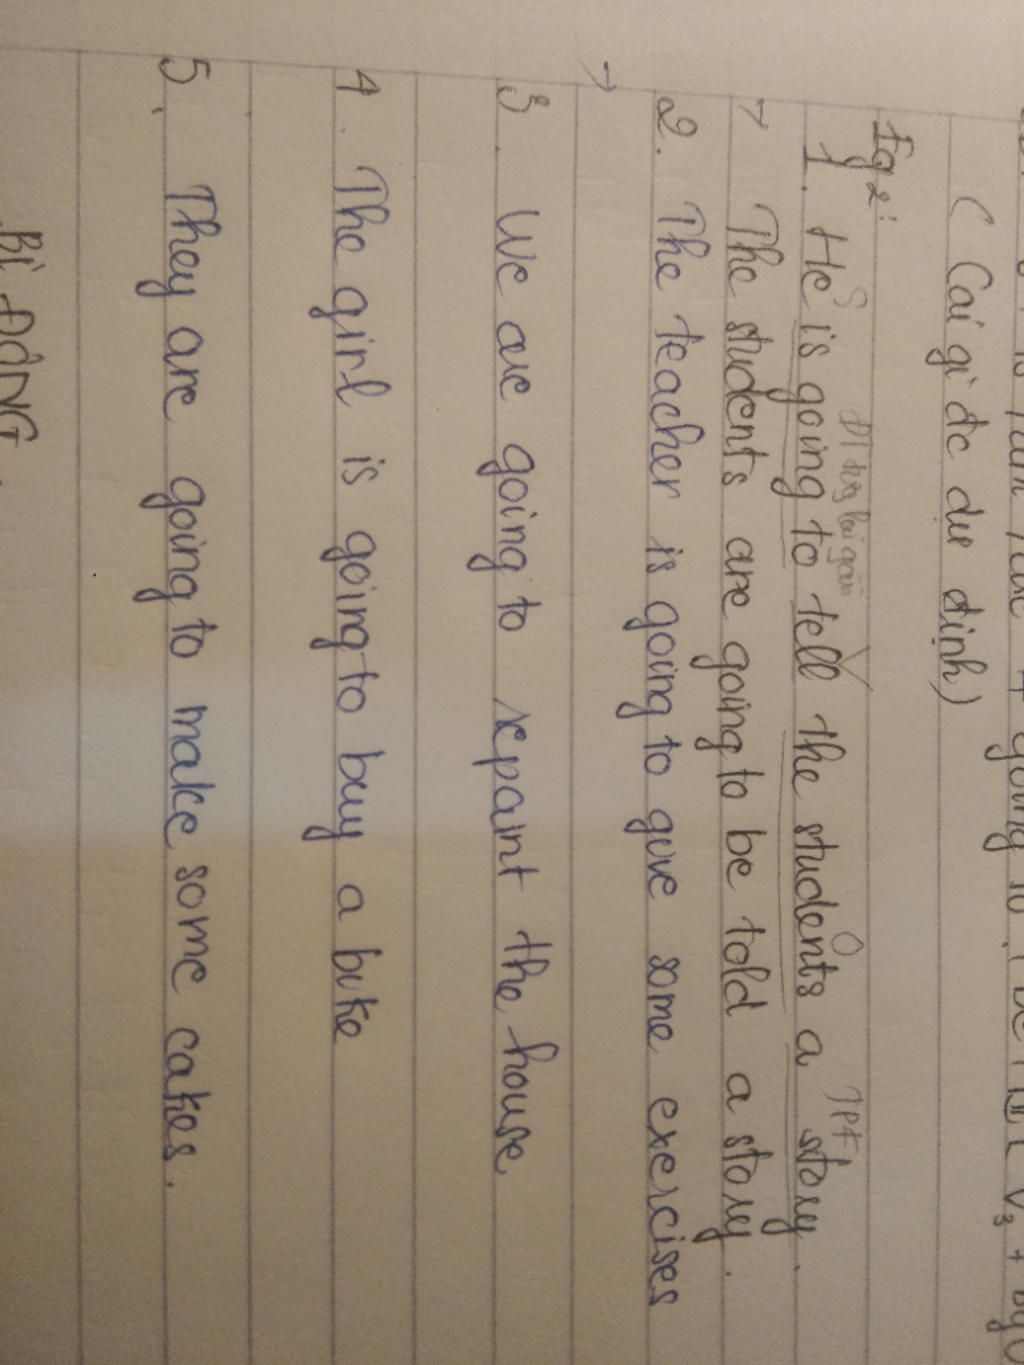 going to
V3 + by O
( Cái gì đc dự định)
Eg 2:
S ĐT tương lai gần V O TPF
1. He is going to tell the students a story.
→ The students are going to be told a story.
2. The teacher is going to give some exercises
→
3. We are going to repaint the house.
4. The girl is going to buy a bike
5. They are going to make some cakes.
BỊ ĐỘNG